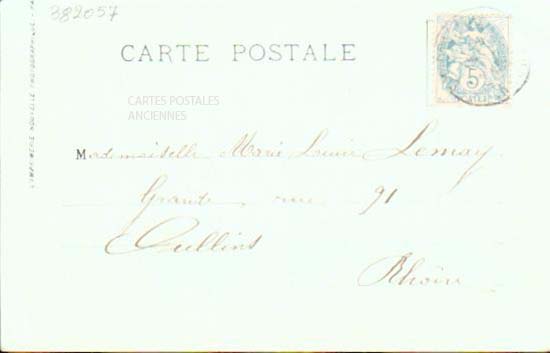 382057
CARTE POSTALE
5
CARTES POSTALES
ANCIENNES
Mademoiselle Marie Louise Lemay
Grande rue 91
Oullins
Rhône